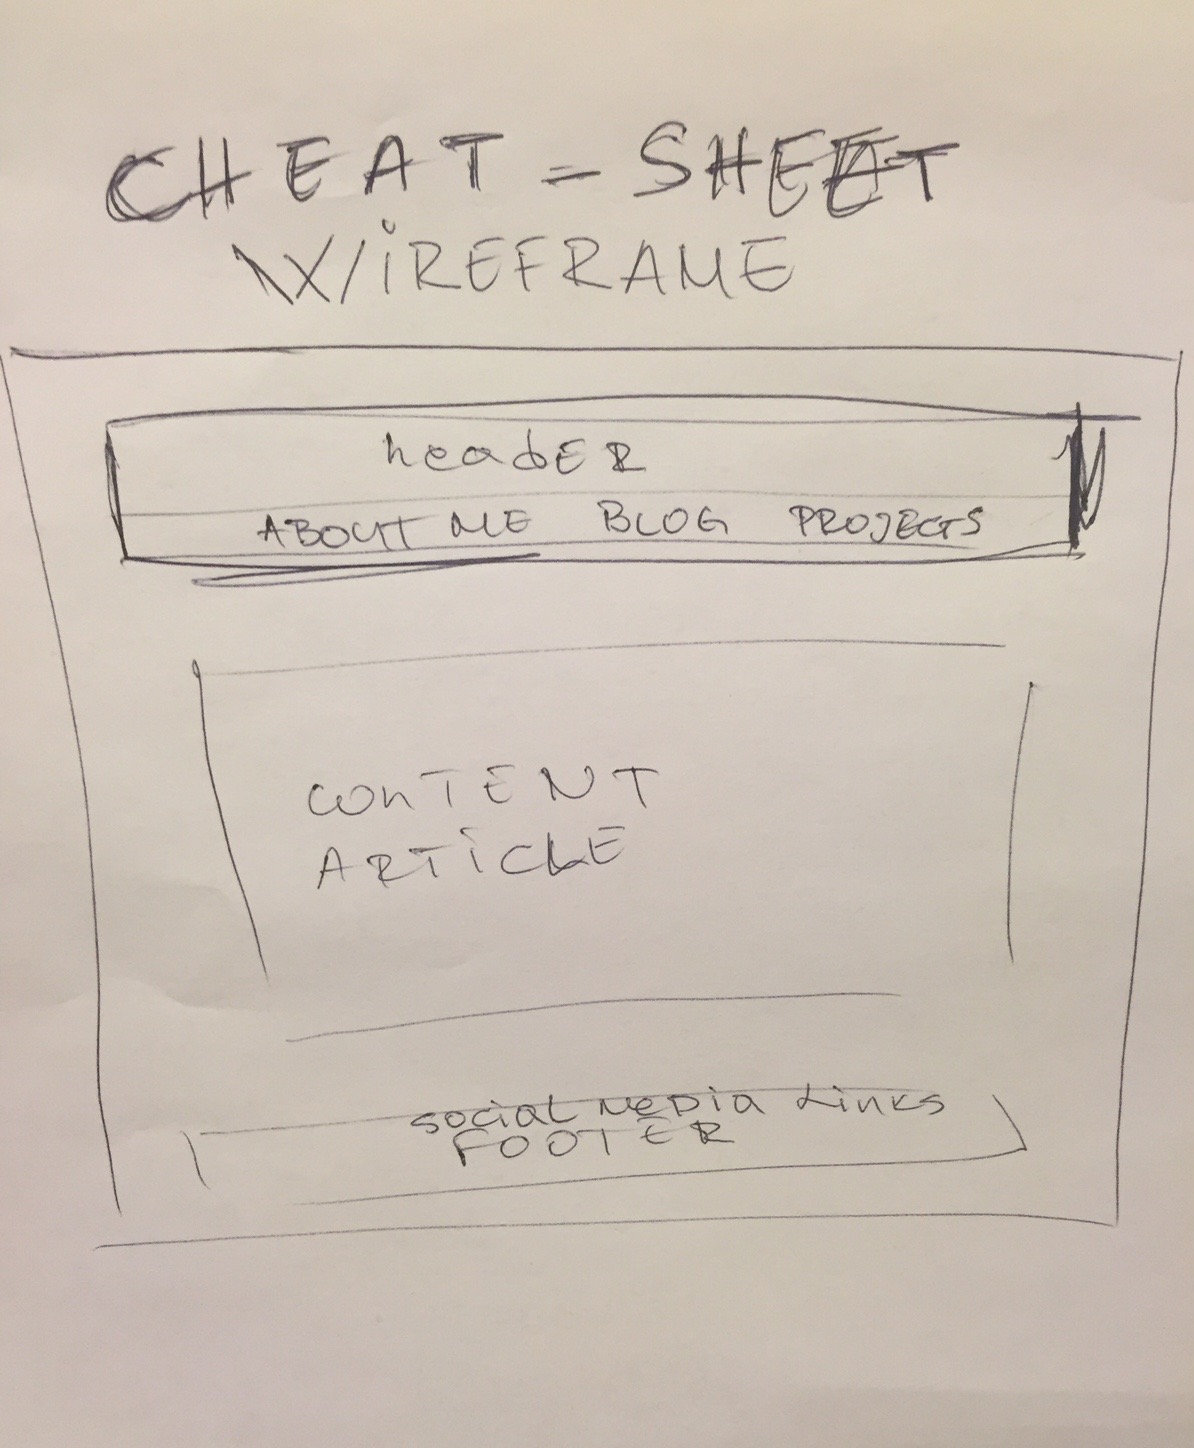 CHEAT - SHEET
WiREFRAME
headER
ABOUT ME BLOG PROJECTS
CONTENT
ARTiCLE
social Media Links
FOOTER